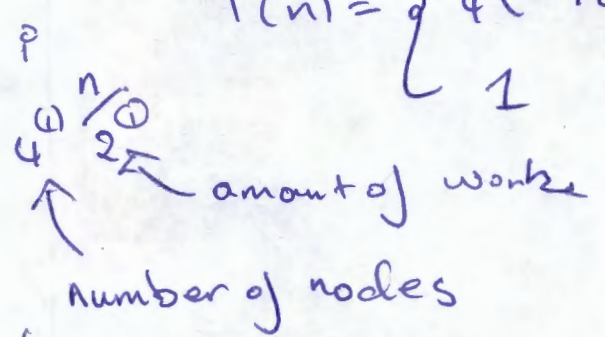 T(n) = { 4(
1
i
4^① n/2^①
amount of work
number of nodes